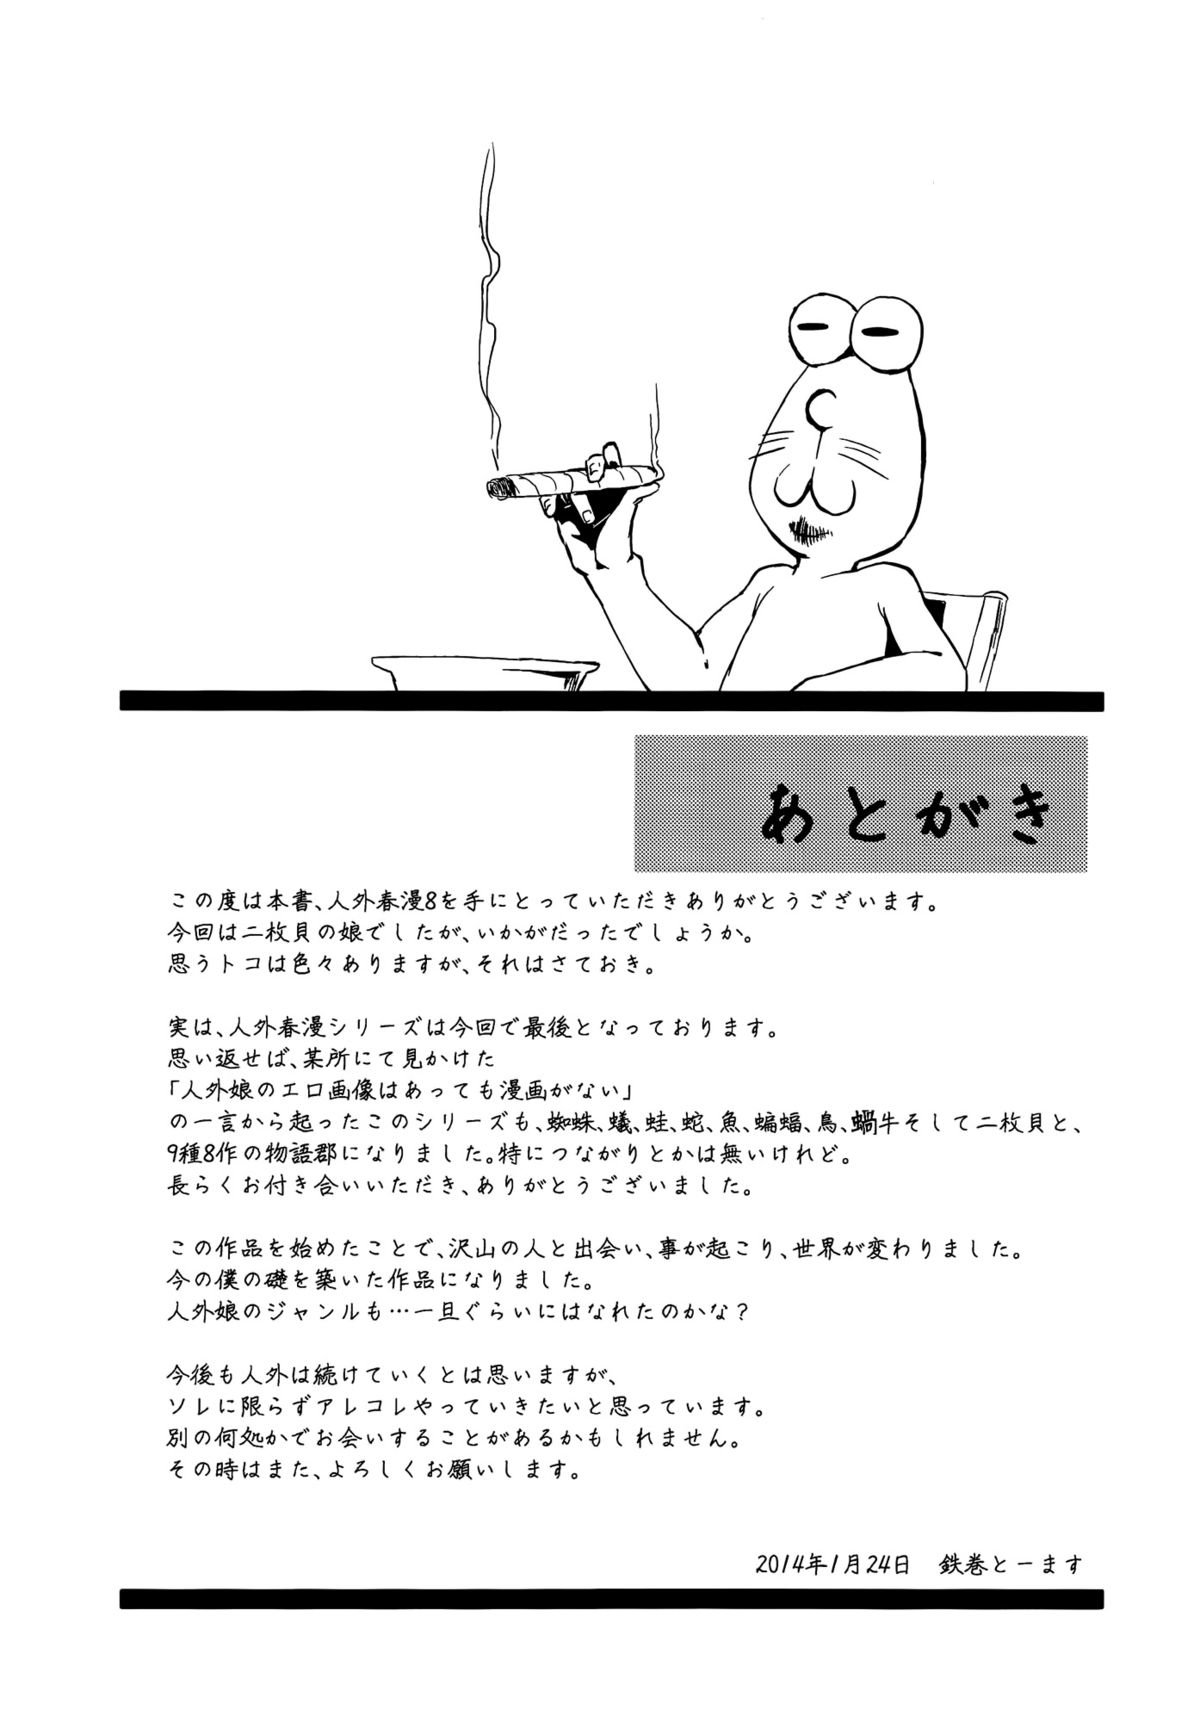 あとがき
この度は本書、人外春漫8を手にとっていただきありがとうございます。
今回は二枚貝の娘でしたが、いかがだったでしょうか。
思うトコは色々ありますが、それはさておき。
実は、人外春漫シリーズは今回で最後となっております。
思い返せば、某所にて見かけた
「人外娘のエロ画像はあっても漫画がない」
の一言から起ったこのシリーズも、蜘蛛、蟻、蛙、蛇、魚、蝙蝠、鳥、蝸牛そして二枚貝と、
9種8作の物語郡になりました。特につながりとかは無いけれど。
長らくお付き合いいただき、ありがとうございました。
この作品を始めたことで、沢山の人と出会い、事が起こり、世界が変わりました。
今の僕の礎を築いた作品になりました。
人外娘のジャンルも…一旦ぐらいにはなれたのかな？
今後も人外は続けていくとは思いますが、
ソレに限らずアレコレやっていきたいと思っています。
別の何処かでお会いすることがあるかもしれません。
その時はまた、よろしくお願いします。
2014年1月24日　鉄巻とーます